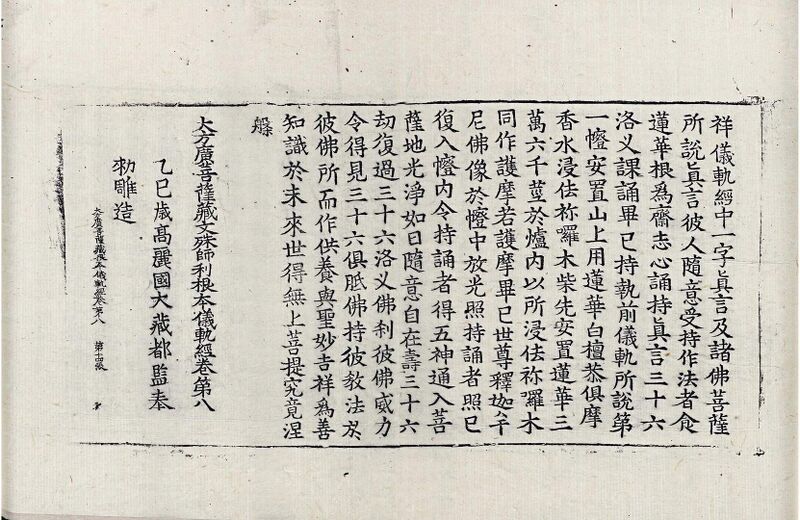 祥儀軌經中一字眞言及諸佛菩薩
所說眞言彼人隨意受持作法者食
蓮華根爲齋志心誦持眞言三十六
洛义課誦畢已持執前儀軌所說第
一㡧安置山上用蓮華白檀恭俱摩
香水浸佉祢囉木柴先安置蓮華三
萬六千莖於爐內以所浸佉祢囉木
同作護摩若護摩畢已世尊釋迦牟
尼佛像於㡧中放光照持誦者照已
復入㡧內令持誦者得五神通入菩
薩地光淨如日隨意自在壽三十六
劫復過三十六洛义佛刹彼佛威力
令得見三十六俱胝佛持彼教法於
彼佛所而作供養與聖妙吉祥爲善
知識於未來世得無上菩提究竟涅
槃
大方廣菩薩藏文殊師利根本儀軌經卷第八
乙巳歲髙麗國大藏都監奉
勑雕造
第八 第十四張